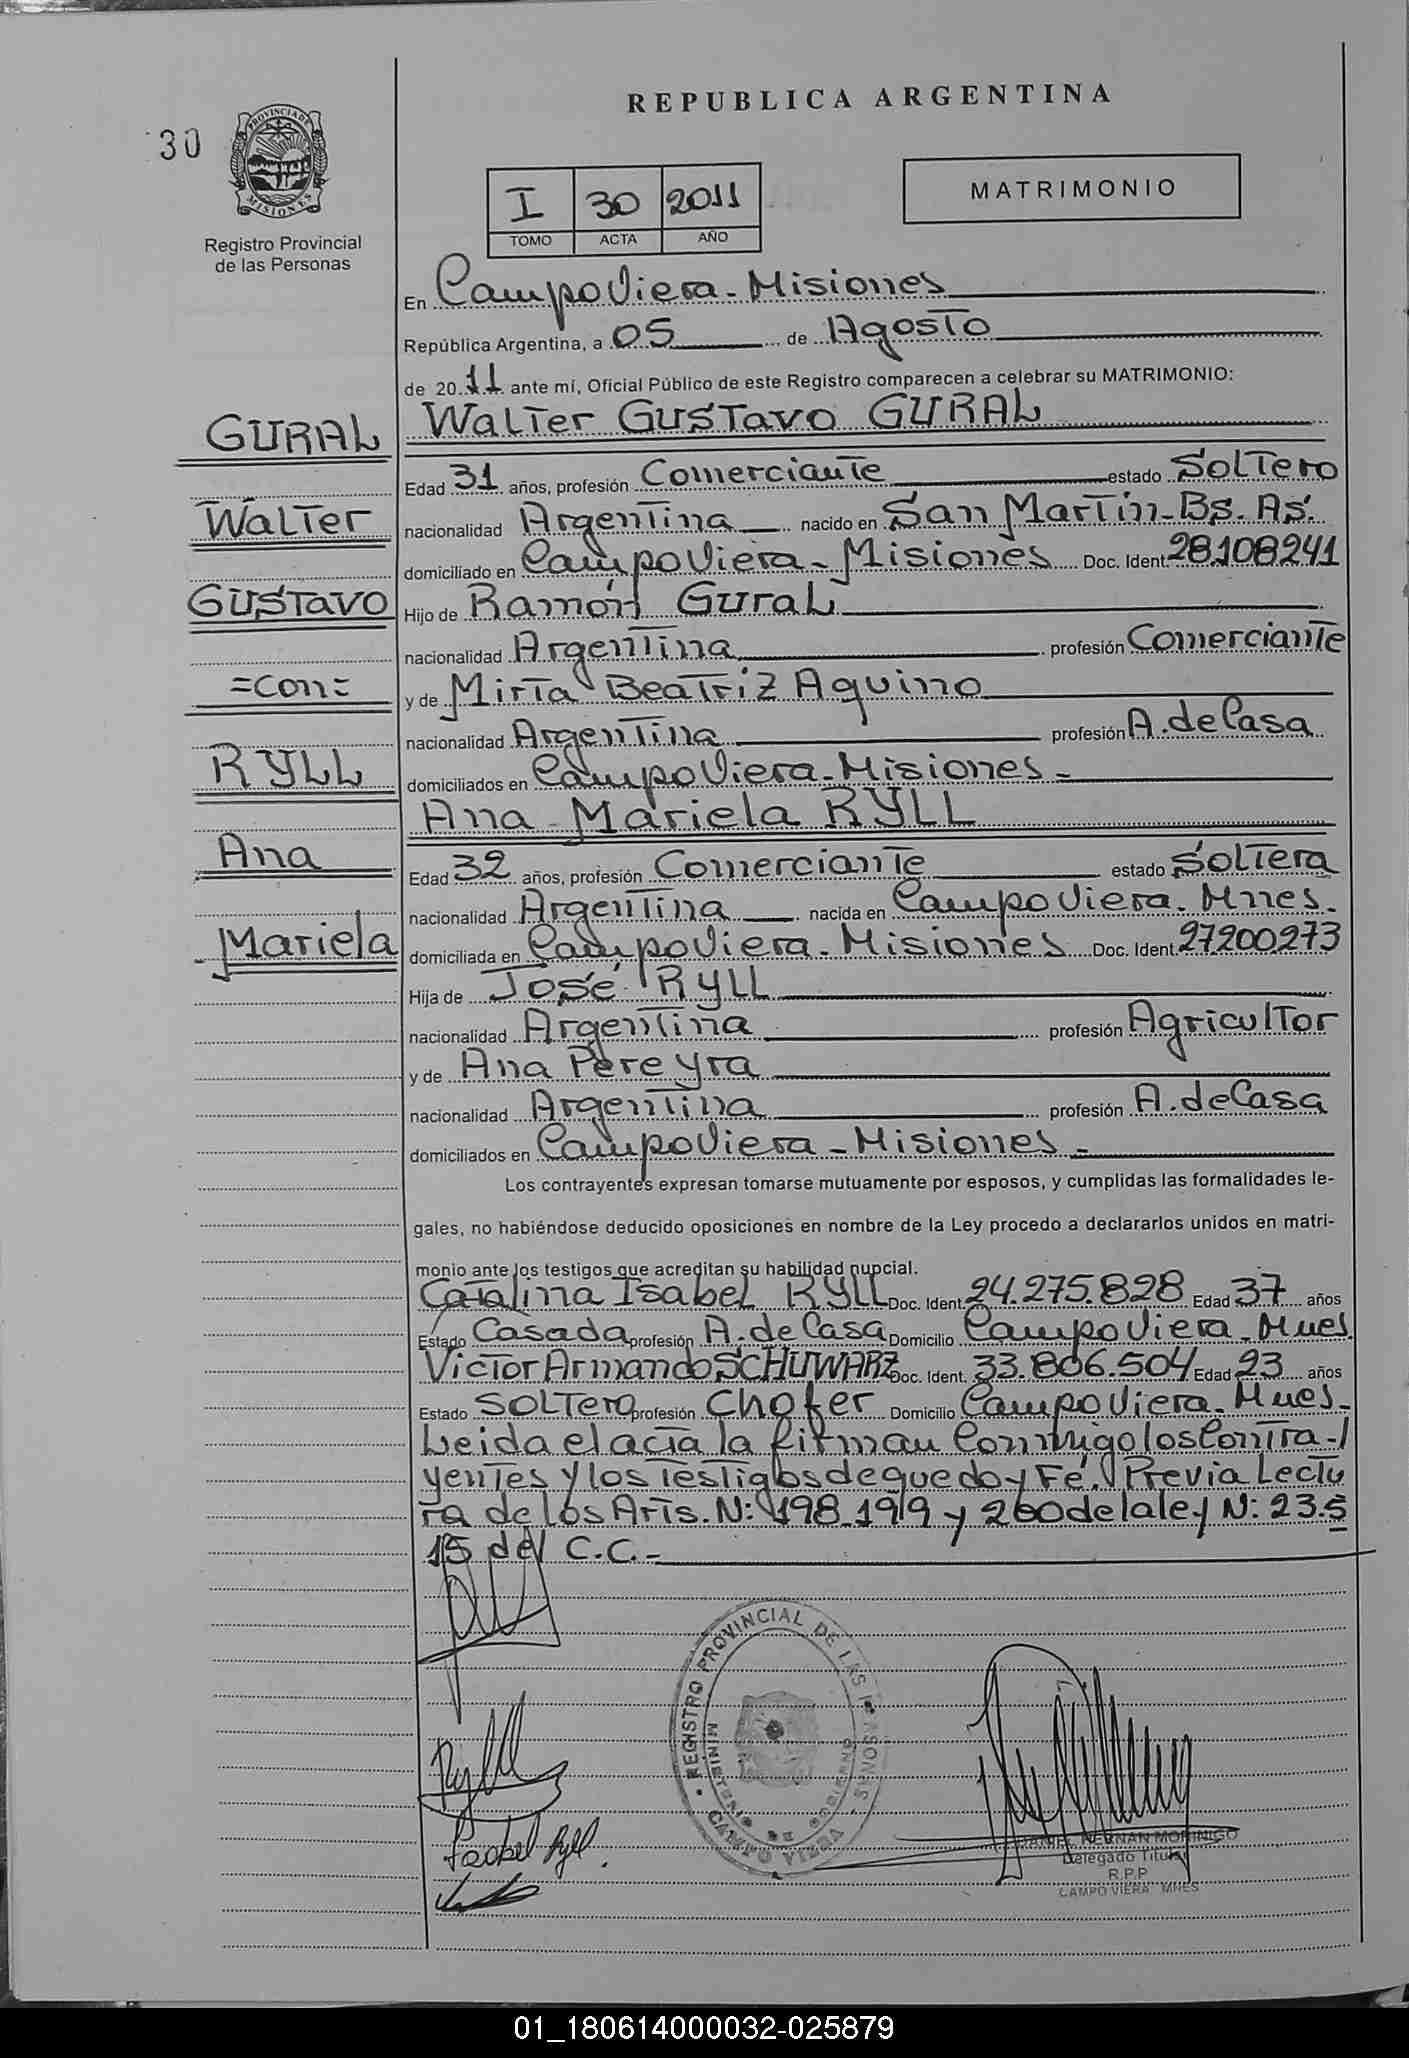 REPUBLICA ARGENTINA
30
PROVINCIA DE MISIONES
Registro Provincial
de las Personas
I 30 2011
TOMO ACTA AÑO
MATRIMONIO
En Campo Viera - Misiones
República Argentina, a 05 de Agosto
de 20 11 ante mí, Oficial Público de este Registro comparecen a celebrar su MATRIMONIO:
GURAL
Walter
Gustavo
=con=
RYLL
Ana
Mariela
Walter Gustavo GURAL
Edad 31 años, profesión Comerciante estado Soltero
nacionalidad Argentina nacido en San Martín - Bs. As.
domiciliado en Campo Viera - Misiones Doc. Ident. 28.108241
Hijo de Ramón Gural
nacionalidad Argentina profesión Comerciante
y de Mirta Beatriz Aquino
nacionalidad Argentina profesión A. de Casa
domiciliados en Campo Viera - Misiones -
Ana Mariela RYLL
Edad 32 años, profesión Comerciante estado Soltera
nacionalidad Argentina nacida en Campo Viera - Mnes.
domiciliada en Campo Viera - Misiones Doc. Ident. 27200273
Hija de José Ryll
nacionalidad Argentina profesión Agricultor
y de Ana Pereyra
nacionalidad Argentina profesión A. de Casa
domiciliados en Campo Viera - Misiones -
Los contrayentes expresan tomarse mutuamente por esposos, y cumplidas las formalidades le-
gales, no habiéndose deducido oposiciones en nombre de la Ley procedo a declararlos unidos en matri-
monio ante los testigos que acreditan su habilidad nupcial.
Catalina Isabel RYLL Doc. Ident. 24.275.828 Edad 37 años
Estado Casada profesión A. de Casa Domicilio Campo Viera - Mnes.
Victor Armando SCHUWARZ Doc. Ident. 33.806.504 Edad 23 años
Estado Soltero profesión Chofer Domicilio Campo Viera - Mnes.
Leida el acta la firman Conmigo los Contra-
yentes y los testigos de que doy Fé. Previa Lectu
ra de los Arts. N: 198-199 y 200 de la ley N: 23.5
15 del C.C.-
Ryll
Isabel Ryll
REGISTRO PROVINCIAL DE LAS PERSONAS
MINISTERIO DE GOBIERNO
CAMPO VIERA
DANIEL HERNAN MORINIGO
Delegado Titular
R.P.P
CAMPO VIERA MNES
01_180614000032-025879